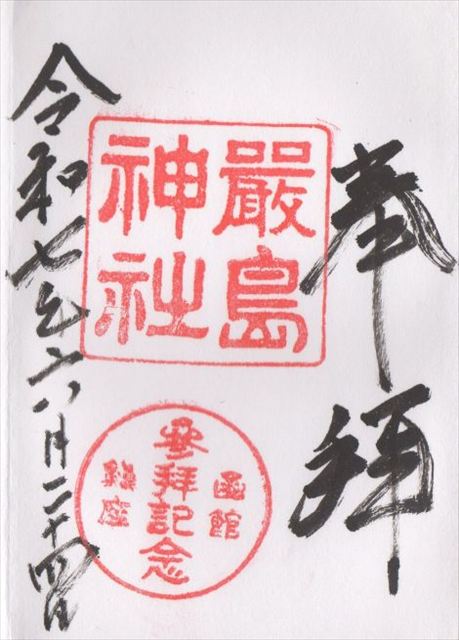 奉拝
嚴島
神社
函館
參拝記念
鎮座
令和七年六月二十四日